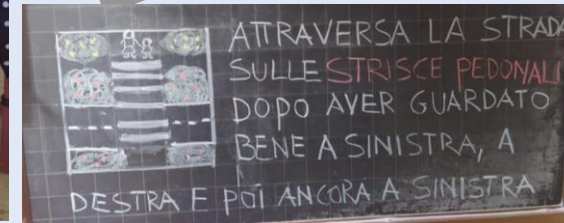 ATTRAVERSA LA STRADA
SULLE STRISCE PEDONALI
DOPO AVER GUARDATO
BENE A SINISTRA, A
DESTRA E POI ANCORA A SINISTRA